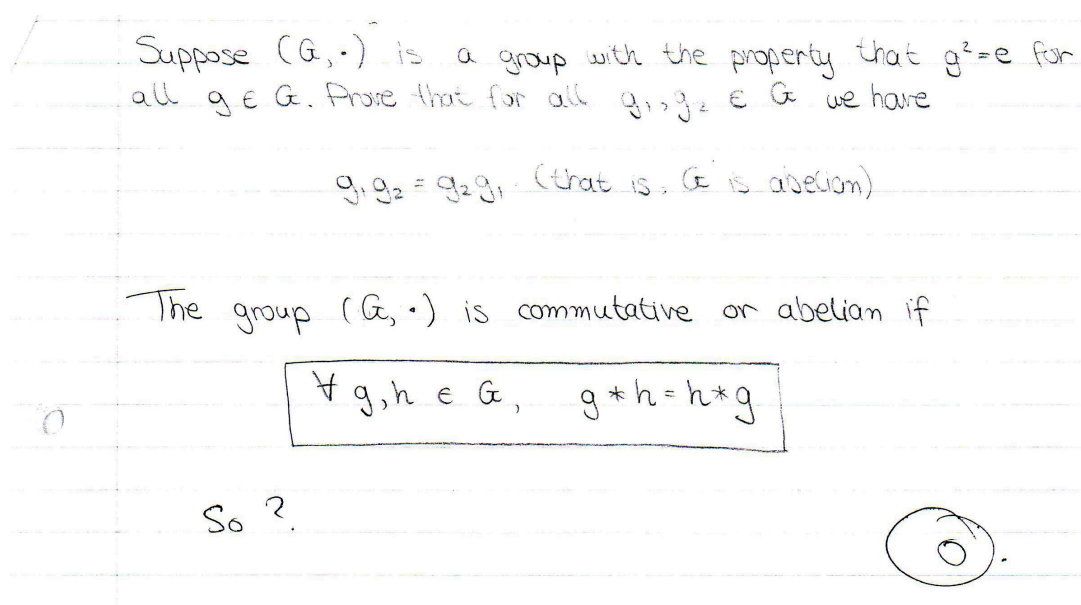 Suppose (G, ·) is a group with the property that g²=e for
all g ∈ G. Prove that for all g₁, g₂ ∈ G we have
g₁g₂ = g₂g₁. (that is, G is abelian)
The group (G, ·) is commutative or abelian if
∀ g,h ∈ G, g * h = h * g
0
So ?
0.